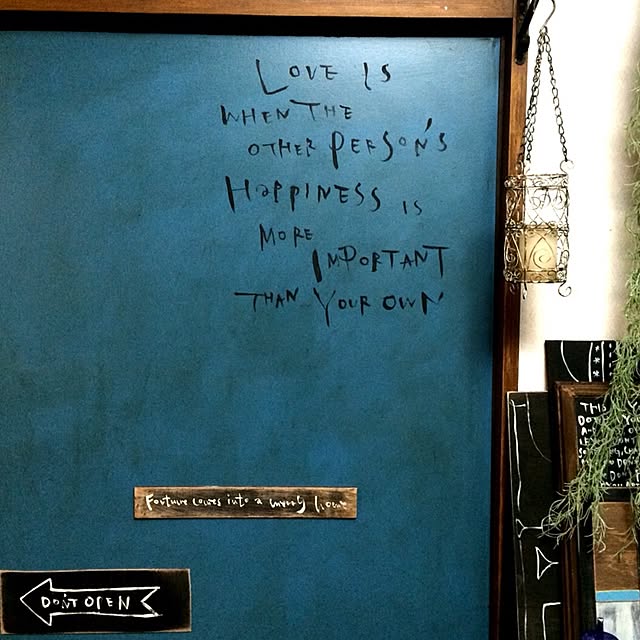 LOVE IS
WHEN THE
OTHER PERSON'S
HAPPINESS IS
MORE
IMPORTANT
THAN YOUR OWN
Fortune comes into a
DON'T OPEN
THIS